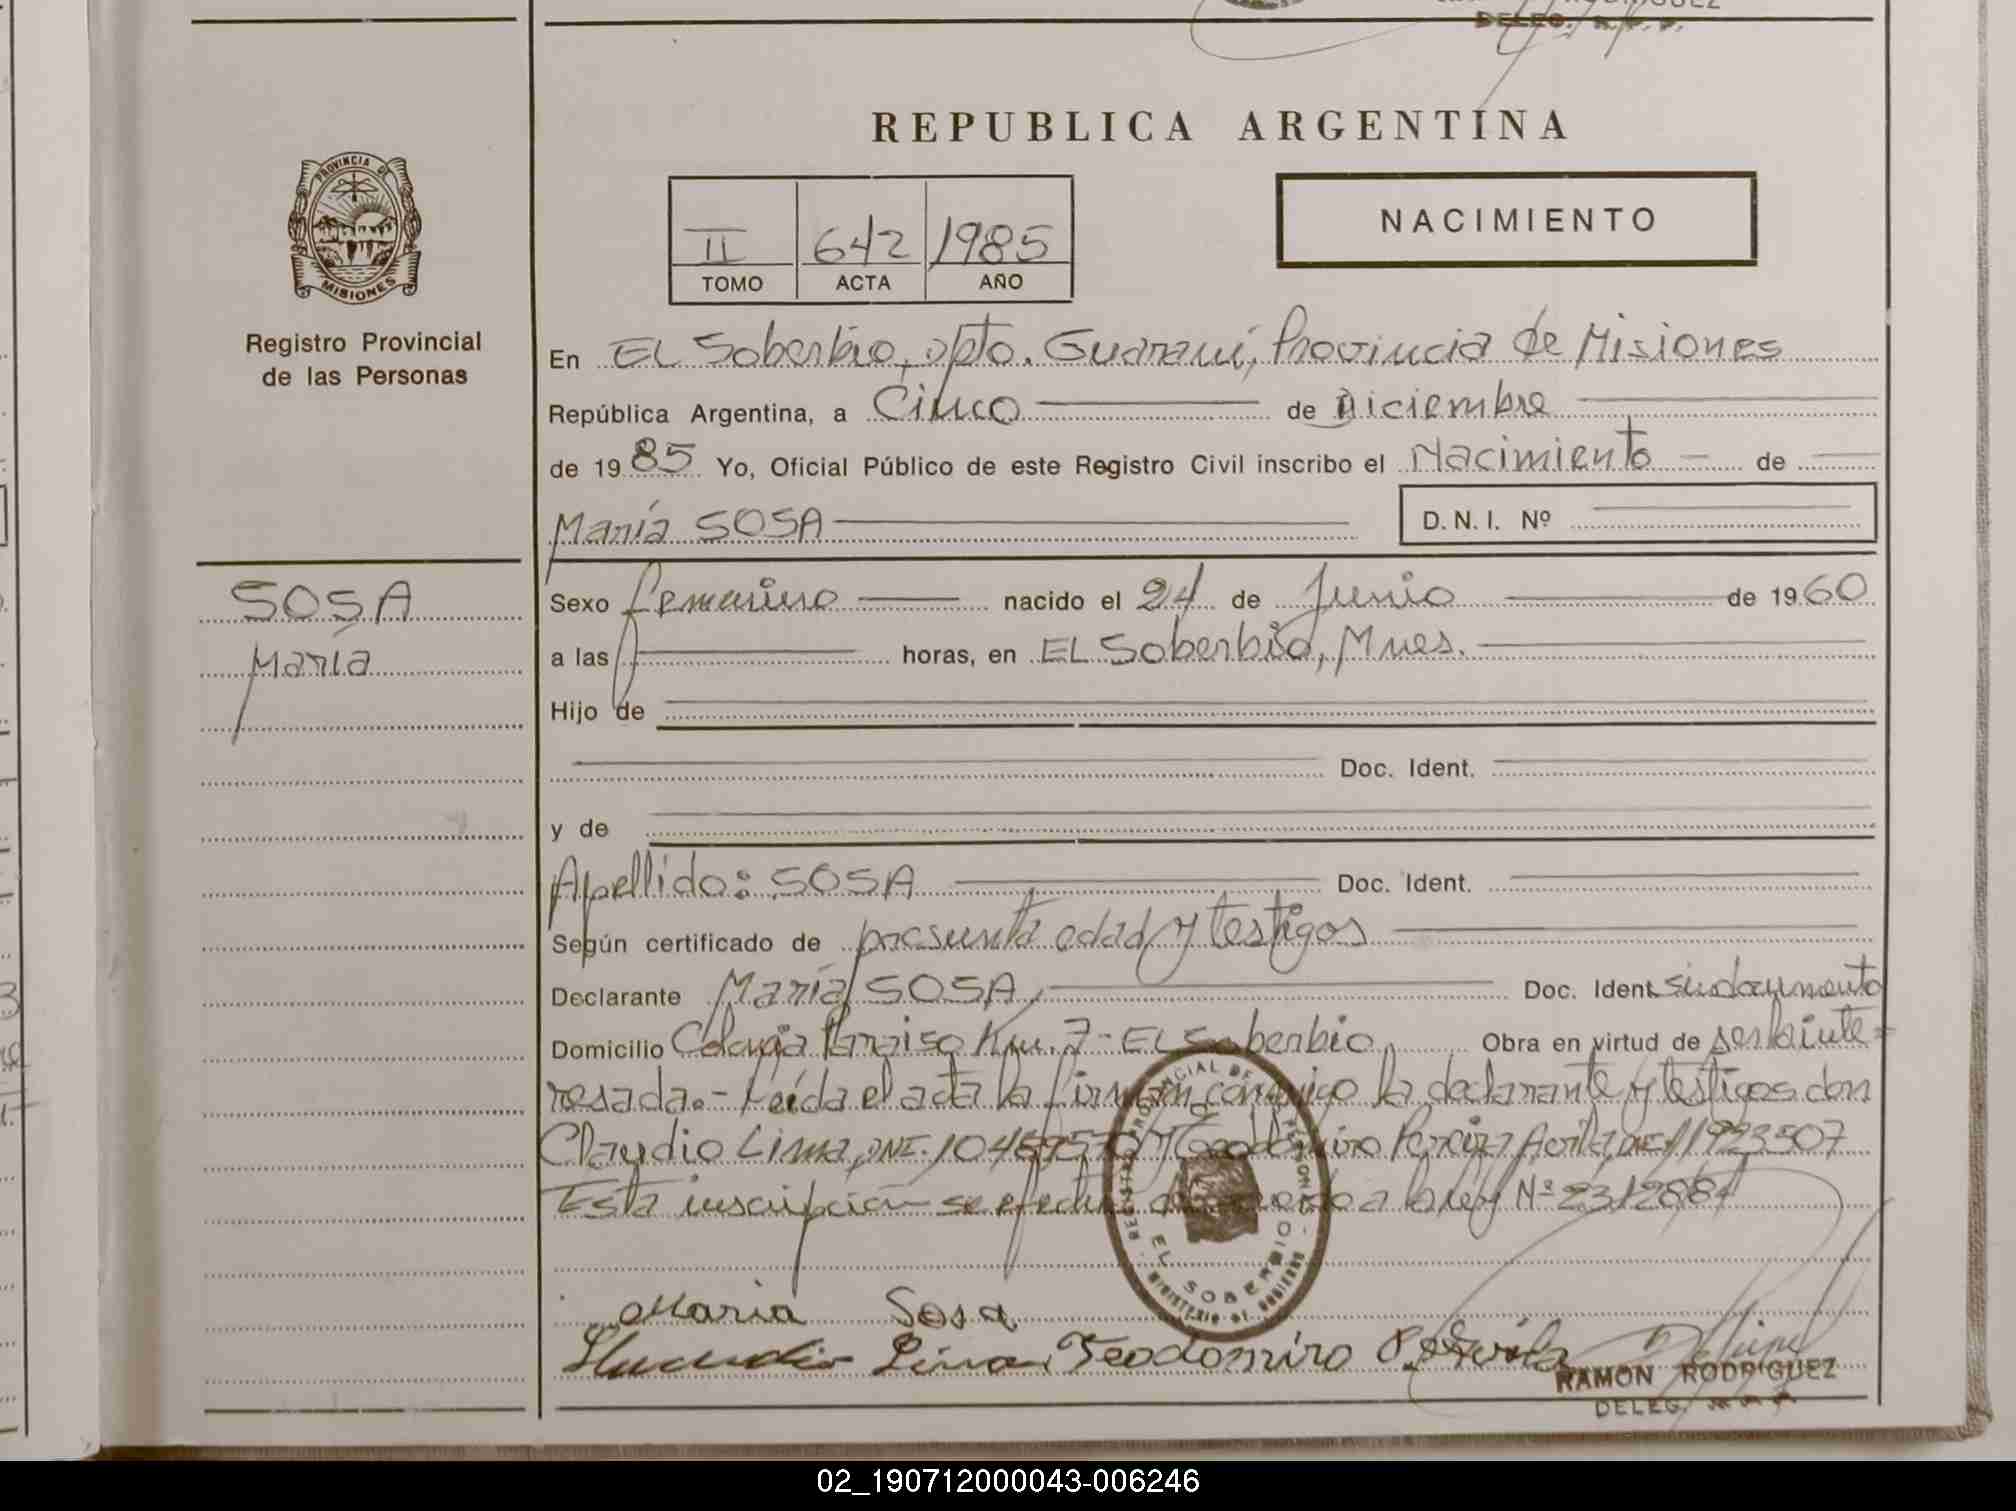 DELEG. R.P.P.
REPUBLICA ARGENTINA
PROVINCIA DE
MISIONES
Registro Provincial
de las Personas
II 642 1985
TOMO ACTA AÑO
NACIMIENTO
En EL Soberbio, dpto. Guaraní, Provincia de Misiones
República Argentina, a Cinco de Diciembre
de 1985 Yo, Oficial Público de este Registro Civil inscribo el Nacimiento de
María SOSA
D.N.I. Nº
SOSA
María
Sexo femenino nacido el 24 de Junio de 1960
a las horas, en EL Soberbio, Mnes.
Hijo de
Doc. Ident.
y de
Apellido: SOSA Doc. Ident.
Según certificado de presunta edad y testigos
Declarante María SOSA, Doc. Ident. sindocumento
Domicilio Colonia Paraiso Km. 7 - EL Soberbio Obra en virtud de ser la inte=
resada.- Leída el acta la firman conmigo la declarante y testigos don
Claudio Lima, DNI. y Teodomiro Pereira Avila, DNI 11923507
Esta inscripción se efectua de acuerdo a la ley Nº
REGISTRO PROVINCIAL DE LAS PERSONAS
EL SOBERBIO
MINISTERIO DE GOBIERNO
Maria Sosa
Claudio Lima Teodomiro P. Avila
RAMON RODRIGUEZ
DELEG.
02_190712000043-006246